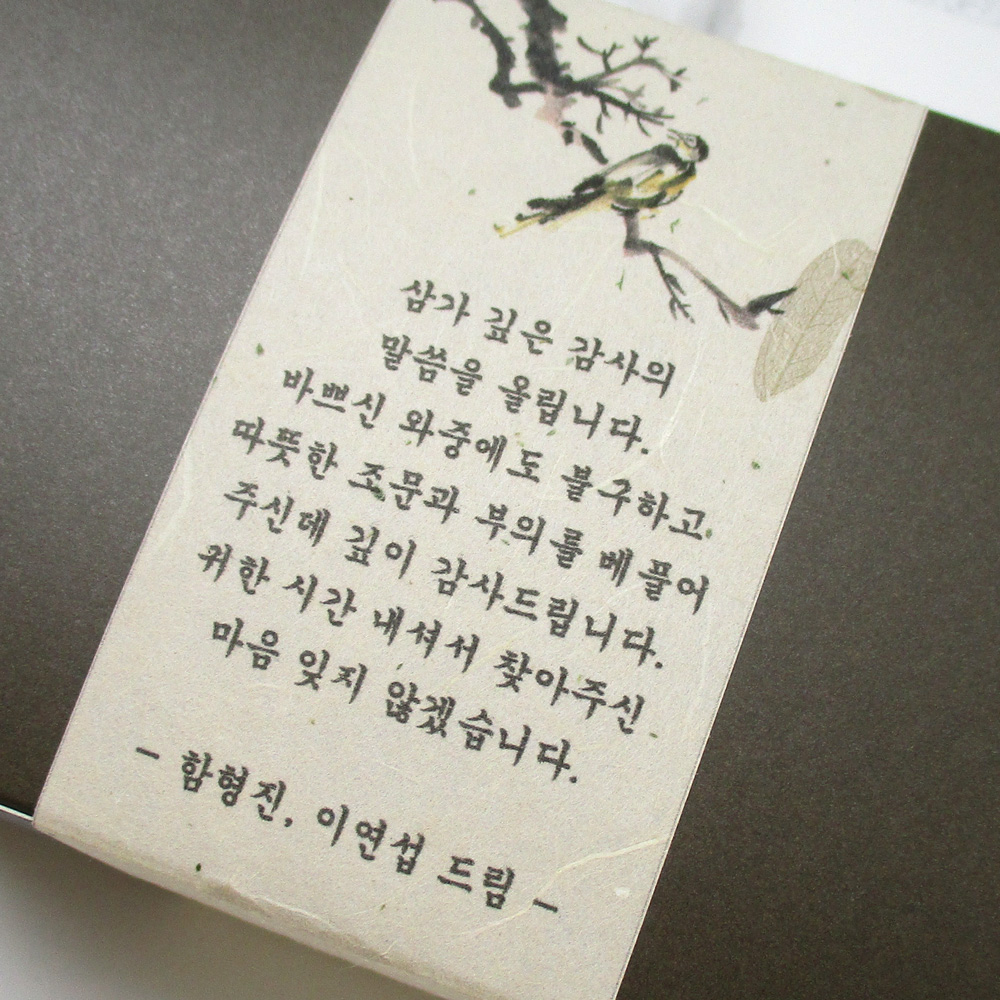 삼가 깊은 감사의
말씀을 올립니다.
바쁘신 와중에도 불구하고
따뜻한 조문과 부의를 베풀어
주신데 깊이 감사드립니다.
귀한 시간 내셔서 찾아주신
마음 잊지 않겠습니다.
- 함형진, 이연섭 드림 -